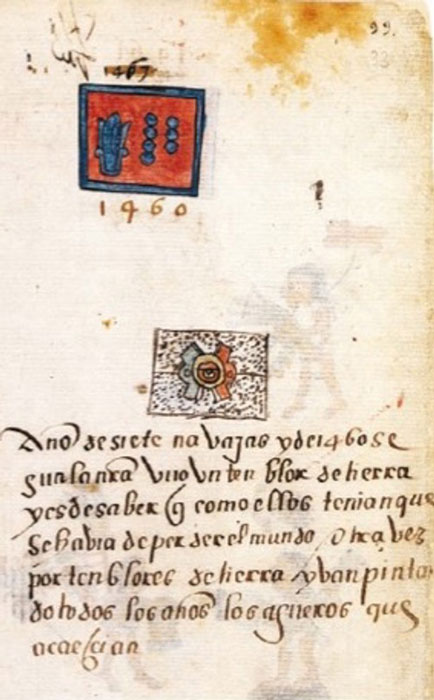 99.
1467
1460
Año de siete navajas y de 1460 se
gun la nr̃a vuo vn tenblor de tierra
y es de saber q̃ como ellos tenian que
se habia de perder el mundo otra vez
por tenblores de tierra y van pinta
do todos los años los agueros que
acaeçian